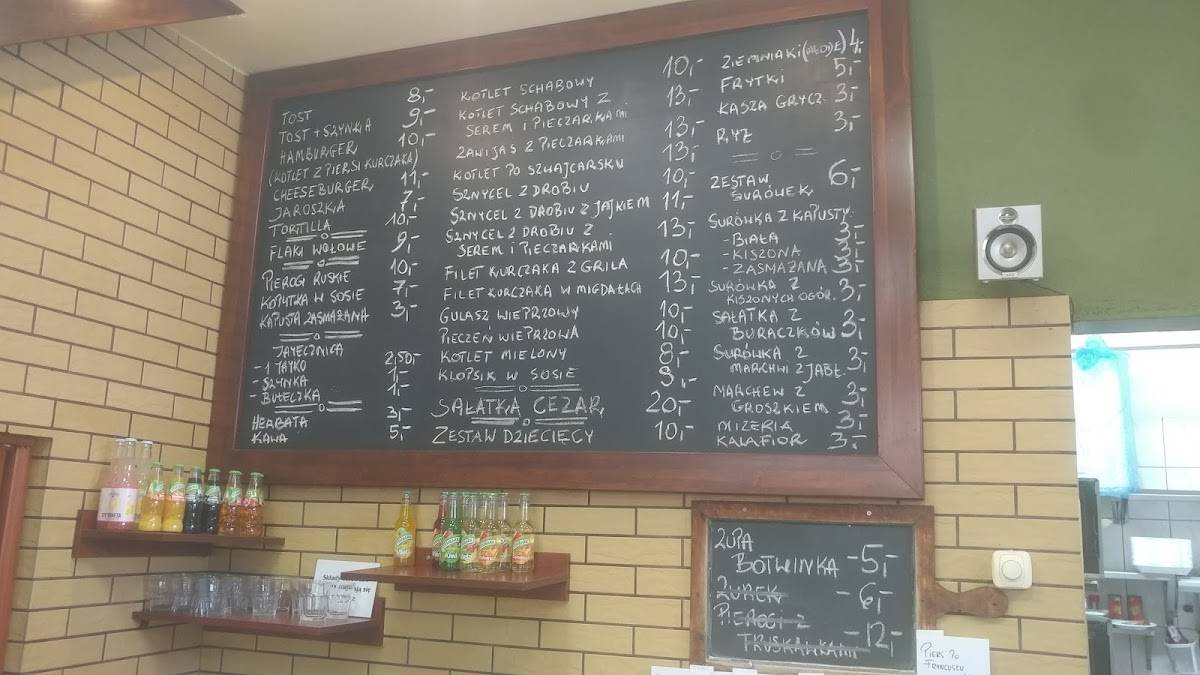 TOST 8,-
TOST + SZYNKA 9,-
HAMBURGER 10,-
(KOTLET Z PIERSI KURCZAKA)
CHEESEBURGER 11,-
JAROSZKA 7,-
TORTILLA 10,-
FLAKI WOŁOWE 9,-
PIEROGI RUSKIE 10,-
KOPYTKA W SOSIE 7,-
KAPUSTA ZASMAŻANA 3,-
JAJECZNICA
- 1 JAJKO 2,50,-
- SZYNKA 1,-
- BUŁECZKA 1,-
HERBATA 3,-
KAWA 5,-
KOTLET SCHABOWY 10,-
KOTLET SCHABOWY Z 13,-
SEREM I PIECZARKAMI
ZAWIJAS Z PIECZARKAMI 13,-
KOTLET PO SZWAJCARSKU 13,-
SZNYCEL Z DROBIU 10,-
SZNYCEL Z DROBIU Z JAJKIEM 11,-
SZNYCEL Z DROBIU Z 13,-
SEREM I PIECZARKAMI
FILET KURCZAKA Z GRILA 10,-
FILET KURCZAKA W MIGDAŁACH 13,-
GULASZ WIEPRZOWY 10,-
PIECZEŃ WIEPRZOWA 10,-
KOTLET MIELONY 8,-
KLOPSIK W SOSIE 9,-
SAŁATKA CEZAR 20,-
ZESTAW DZIECIĘCY 10,-
ZIEMNIAKI (MŁODE) 4,-
FRYTKI 5,-
KASZA GRYCZ. 3,-
RYŻ 3,-
ZESTAW 6,-
SURÓWEK
SURÓWKA Z KAPUSTY
- BIAŁA 3,-
- KISZONA 3,-
- ZASMAŻANA 3,-
SURÓWKA Z
KISZONYCH OGÓR. 3,-
SAŁATKA Z
BURACZKÓW 3,-
SURÓWKA Z
MARCHWI Z JABŁ. 3,-
MARCHEW Z
GROSZKIEM 3,-
MIZERIA 3,-
KALAFIOR 3,-
ZUPA
BOTWINKA -5,-
ŻUREK -6,-
PIEROGI Z
TRUSKAWKAMI -12,-
PIERŚ PO
FRANCUSKU